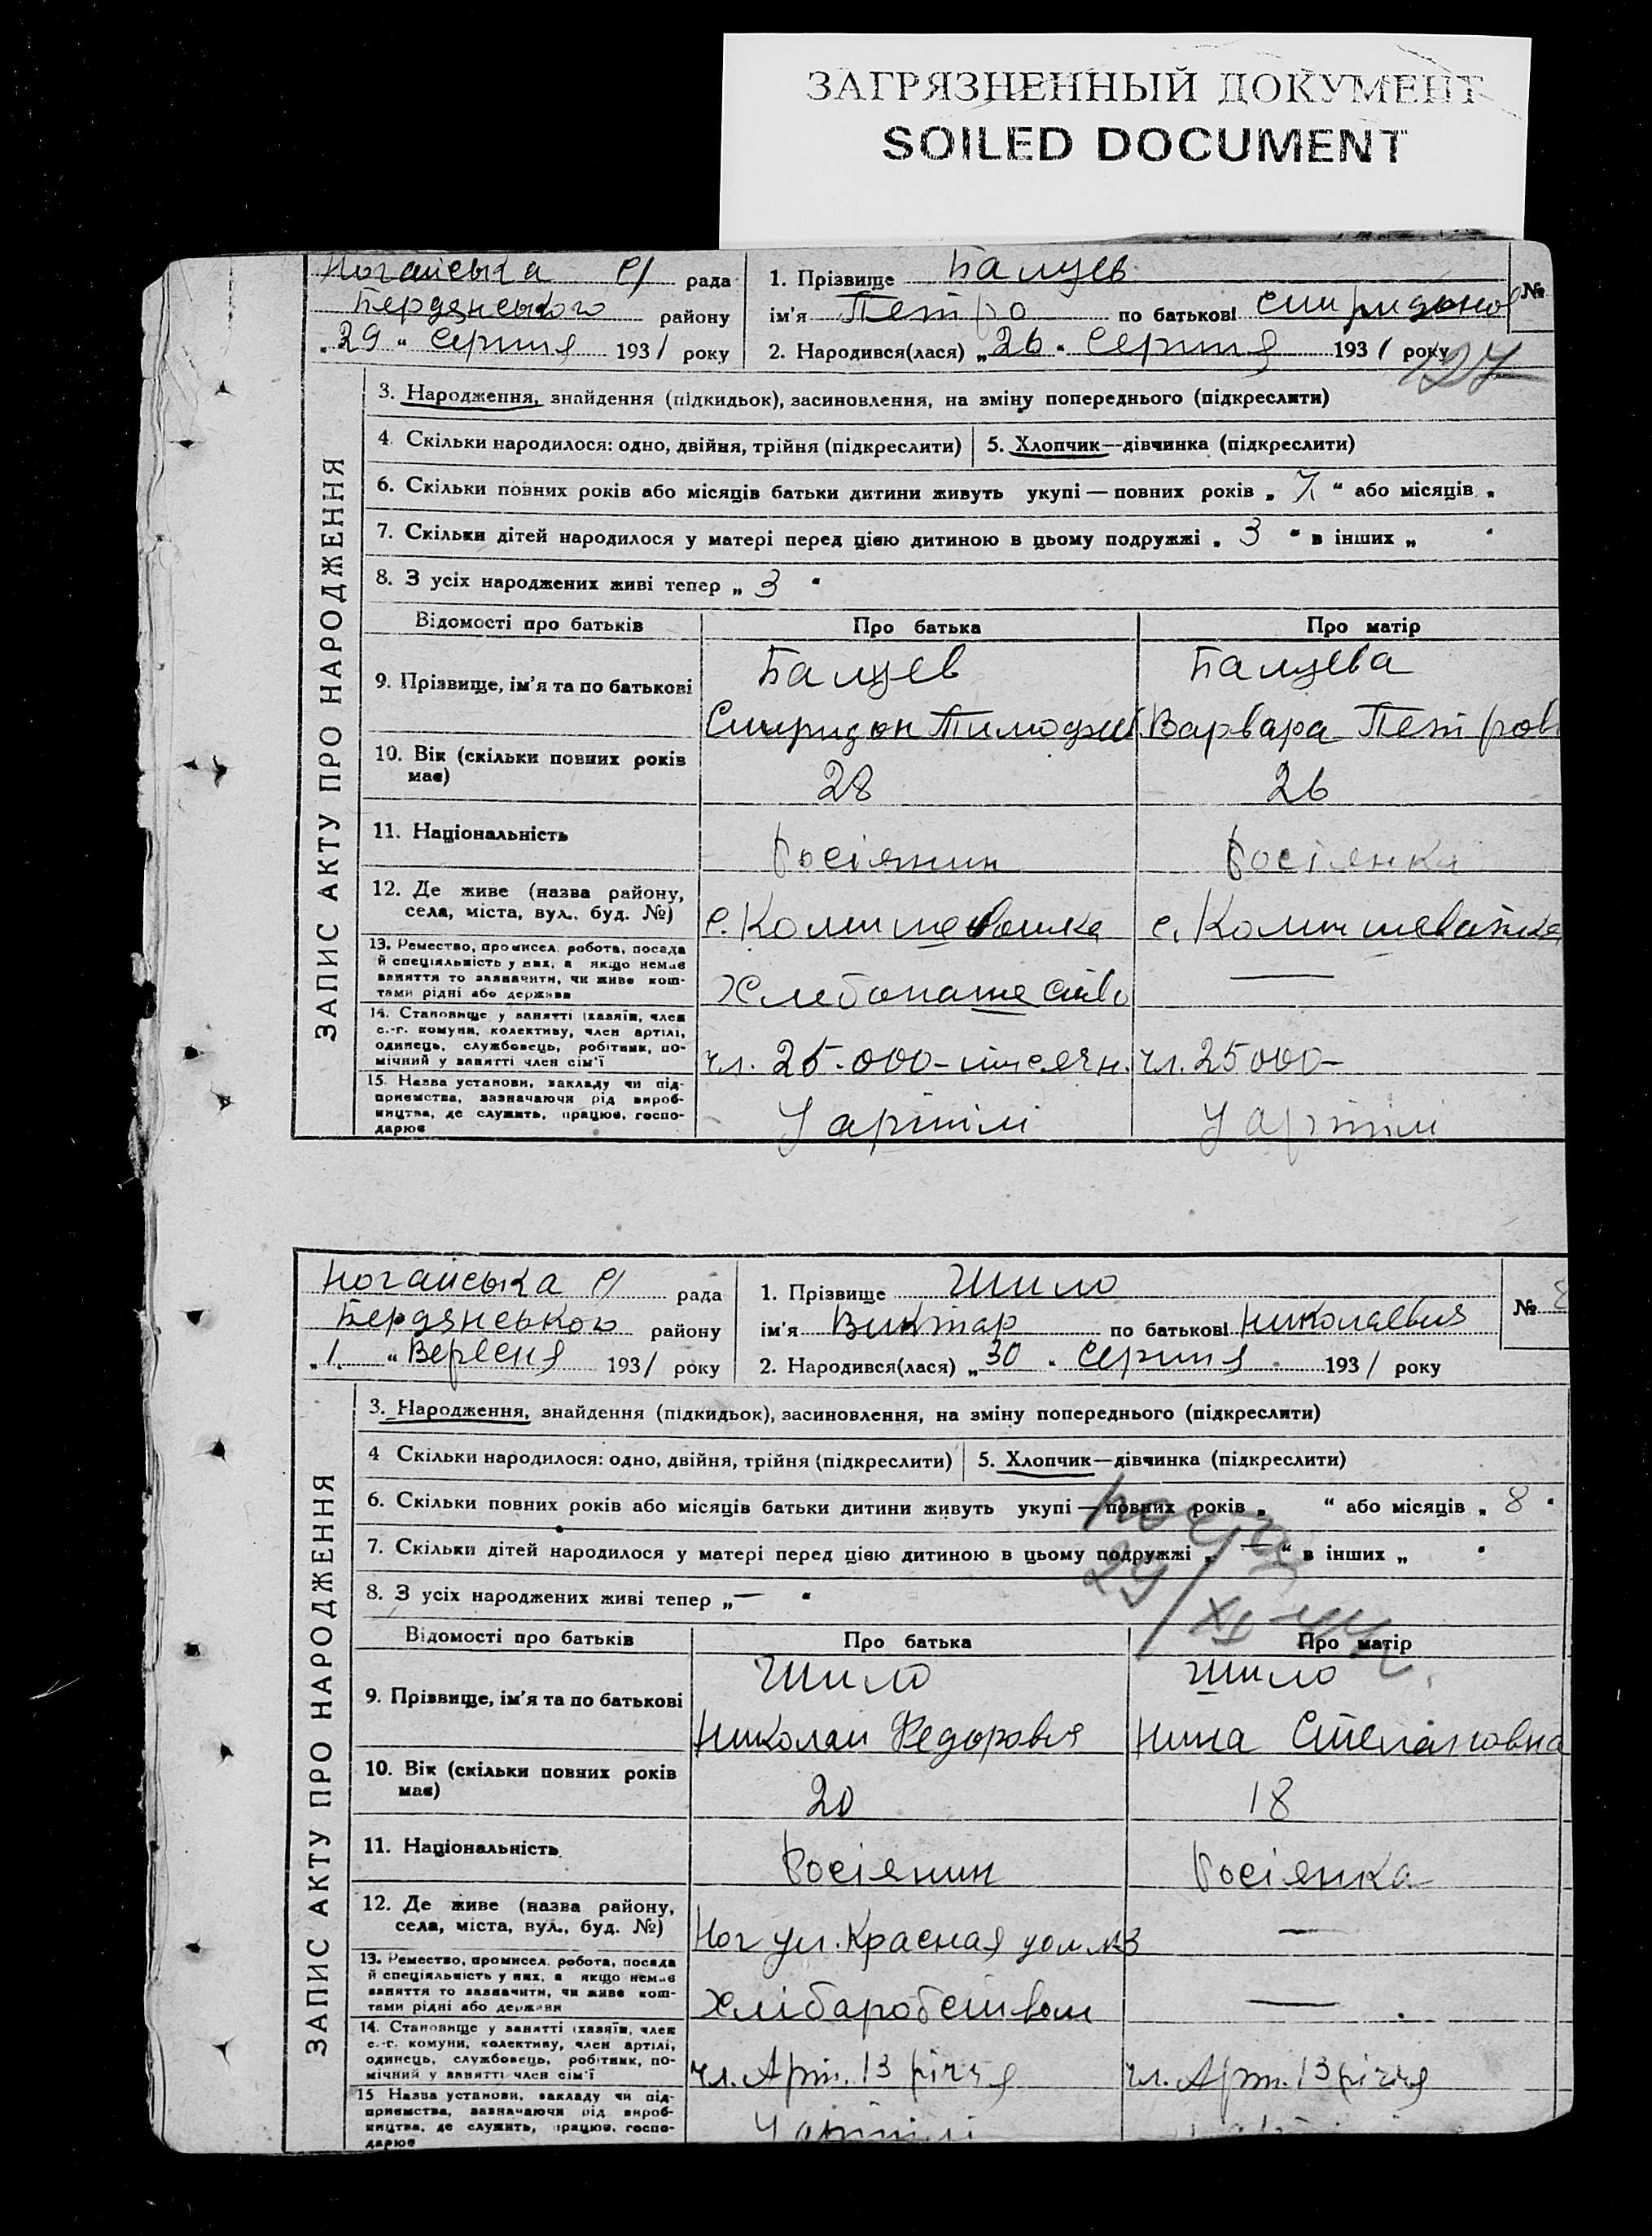 ЗАГРЯЗНЕННЫЙ ДОКУМЕНТ
SOILED DOCUMENT
Ногайська с/ рада
Бердянського району
„29“ Серпня 1931 року
1. Прізвище Балцев
ім'я Петро по батькові Спиридонов
№
2. Народився(лася) „26“ Серпня 1931 року
ЗАПИС АКТУ ПРО НАРОДЖЕННЯ
3. Народження, знайдення (підкидьок), засиновлення, на зміну попереднього (підкреслити)
4. Скільки народилося: одно, двійня, трійня (підкреслити) 5. Хлопчик—дівчинка (підкреслити)
6. Скільки повних років або місяців батьки дитини живуть укупі — повних років „7“ або місяців „
7. Скільки дітей народилося у матері перед цією дитиною в цьому подружжі „3“ в інших „ “
8. З усіх народжених живі тепер „3“
Відомості про батьків Про батька Про матір
9. Прізвище, ім'я та по батькові Балцев Балцева
Спиридон Тимофеев Варвара Петров
10. Вік (скільки повних років має) 28 26
11. Національність Росіянин Росіянка
12. Де живе (назва району, села, міста, вул., буд. №) с. Комишеватка с. Комишеватка
13. Ремество, промисел, робота, посада й спеціяльність у них, а якщо немає заняття то зазначити, чи живе коштами рідні або держави Хлебопашество —
14. Становище у занятті (хазяїн, член с.-г. комуни, колективу, член артілі, одинець, службовець, робітник, помічний у занятті член сім'ї чл. 25.000-тисячн. чл. 25000-
15. Назва установи, закладу чи підприємства, зазначаючи рід виробництва, де служить, працює, господарює У артілі У артілі
Ногайська с/ рада
Бердянського району
„1“ Вересня 1931 року
1. Прізвище Шило
ім'я Виктар по батькові Николаевич
№
2. Народився(лася) „30“ Серпня 1931 року
ЗАПИС АКТУ ПРО НАРОДЖЕННЯ
3. Народження, знайдення (підкидьок), засиновлення, на зміну попереднього (підкреслити)
4 Скільки народилося: одно, двійня, трійня (підкреслити) 5. Хлопчик—дівчинка (підкреслити)
6. Скільки повних років або місяців батьки дитини живуть укупі — повних років „ “ або місяців „8“
7. Скільки дітей народилося у матері перед цією дитиною в цьому подружжі „—“ в інших „ “
29/XI
8. З усіх народжених живі тепер „—“
Відомості про батьків Про батька Про матір
9. Прізвище, ім'я та по батькові Шило Шило
Николаи Федорович Нина Степановна
10. Вік (скільки повних років має) 20 18
11. Національність Росіянин Росіянка
12. Де живе (назва району, села, міста, вул., буд. №) Ног ул. Красная дом №3 —
13. Ремество, промисел, робота, посада й спеціяльність у них, а якщо немає заняття то зазначити, чи живе коштами рідні або держави Хлібаробством —
14. Становище у занятті (хазяїн, член с.-г. комуни, колективу, член артілі, одинець, службовець, робітник, помічний у занятті член сім'ї чл. Арт. 13 річчя чл. Арт. 13 річчя
15 Назва установи, закладу чи підприємства, зазначаючи рід виробництва, де служить, працює, господарює У артілі